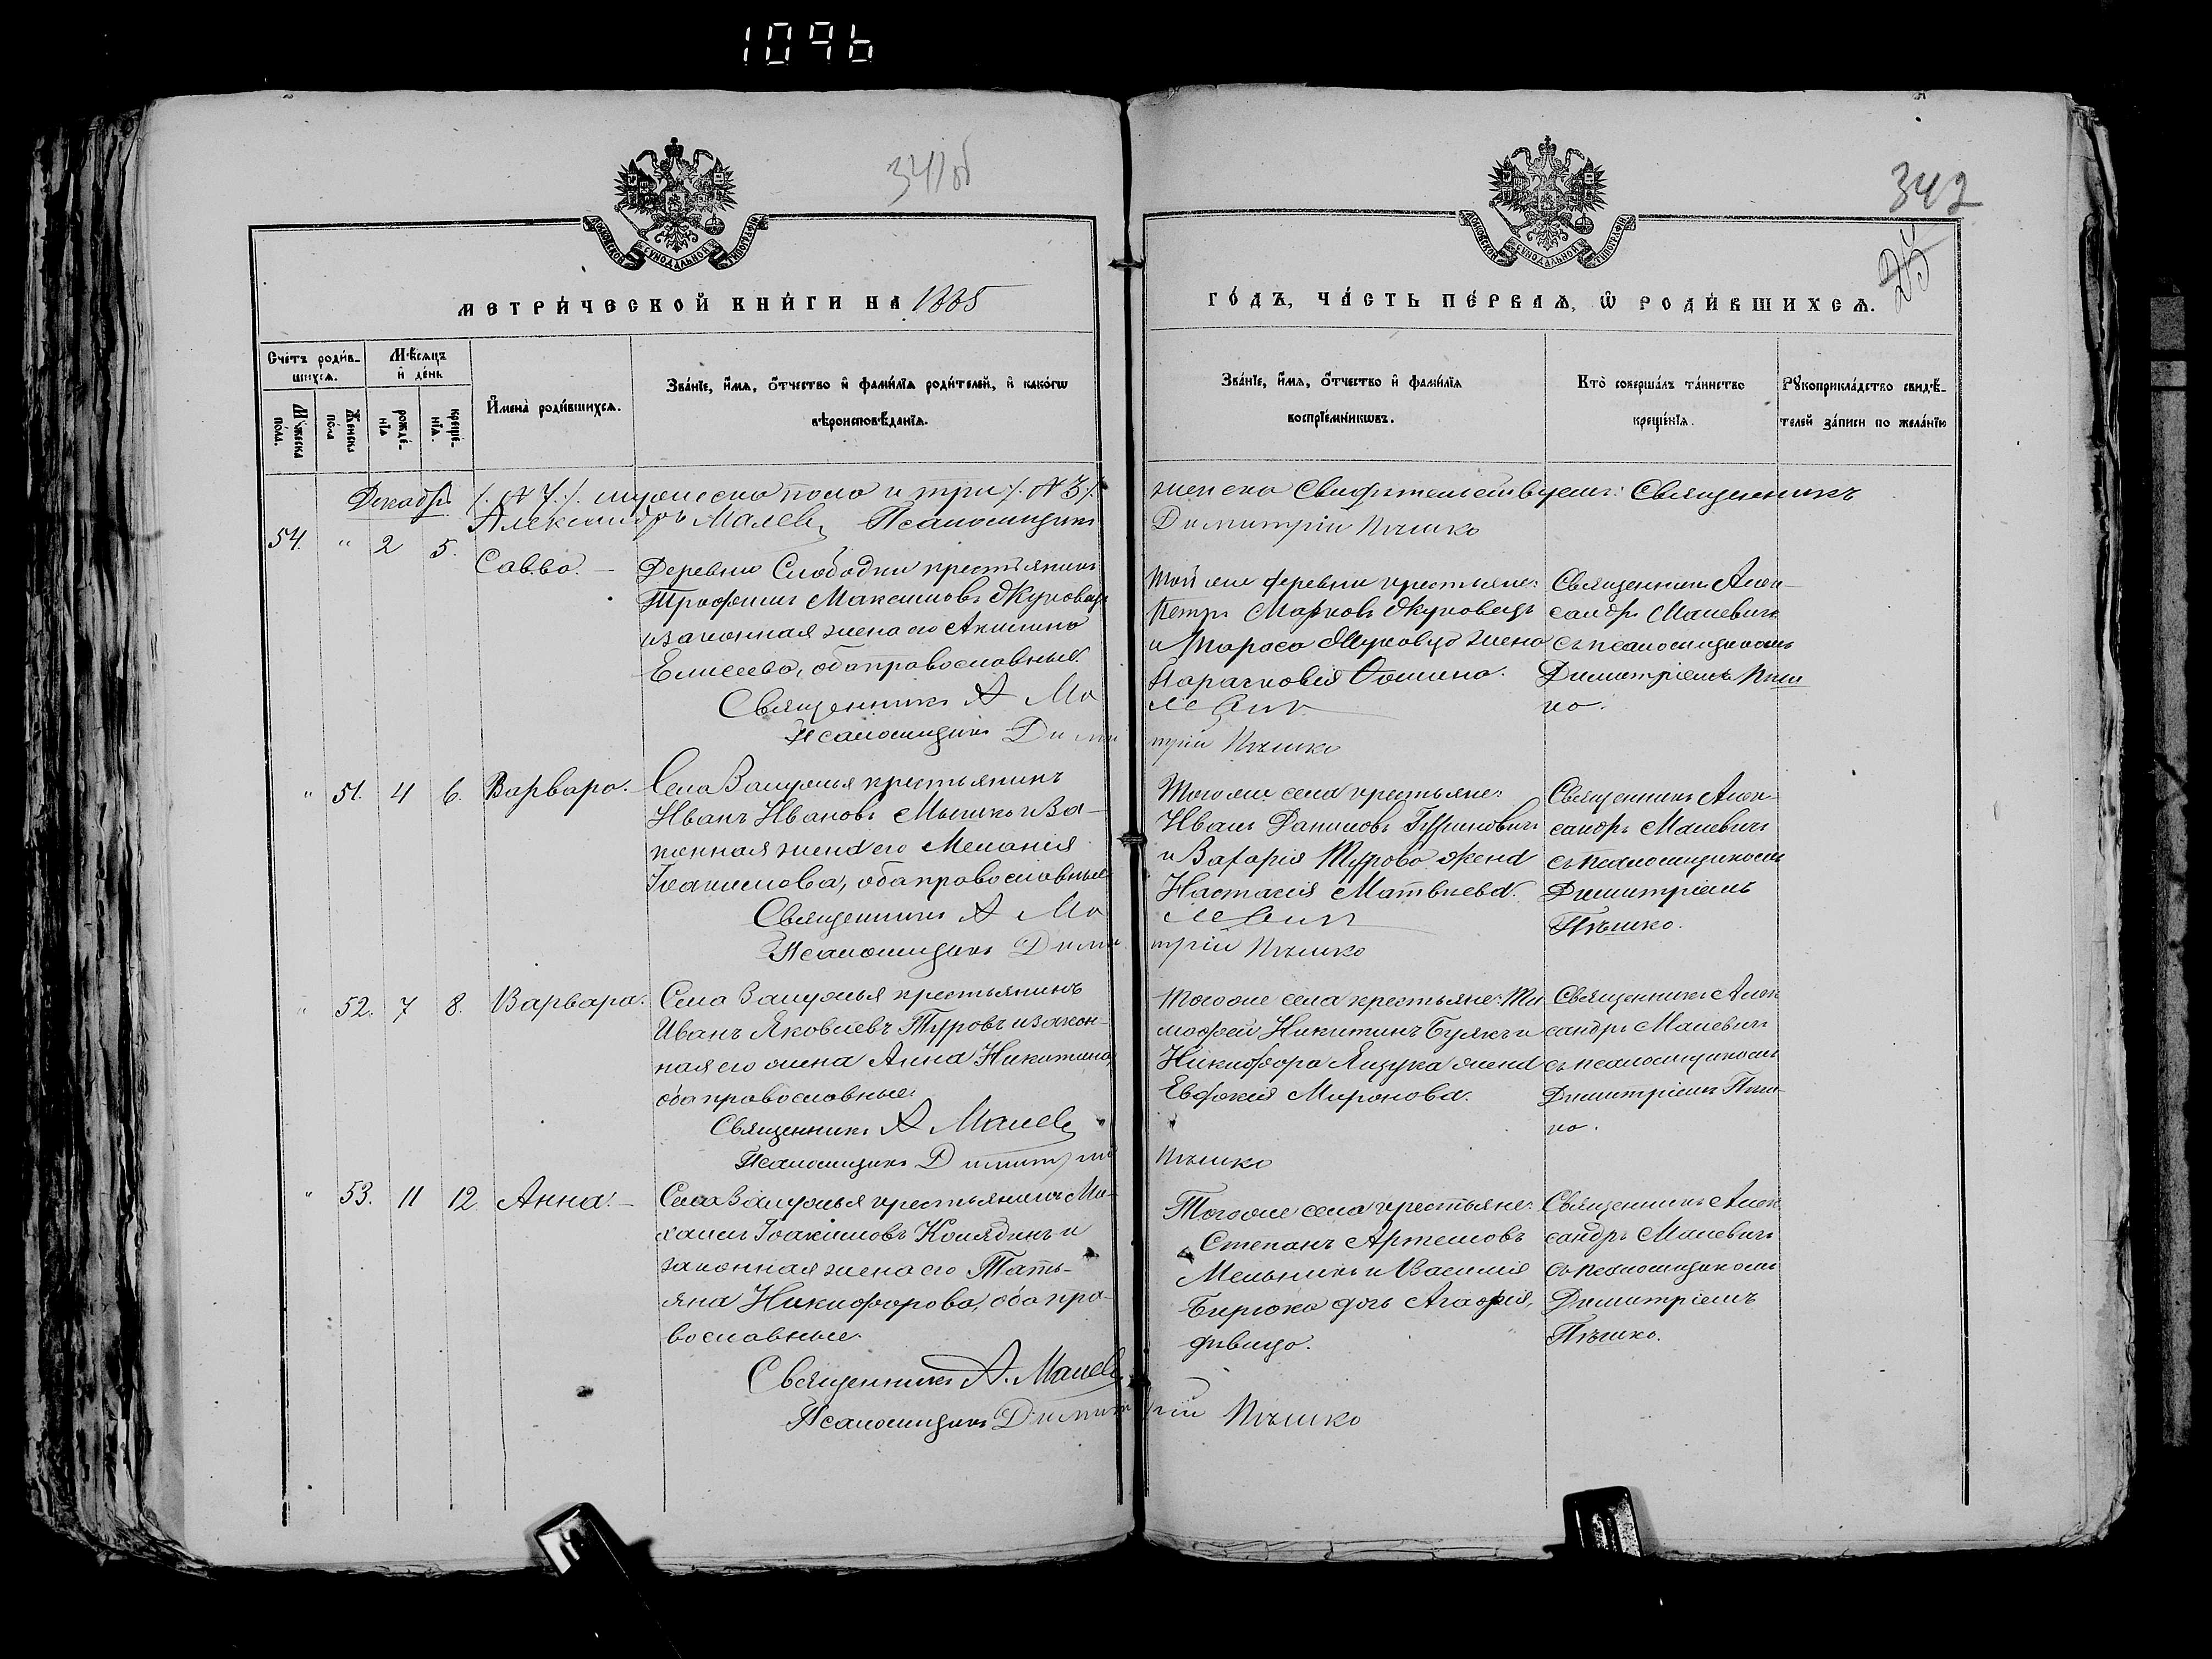 1096
341об
342
25
МОСКОВСКОЙ СѴНОДАЛЬНОЙ ТИПОГРАФІИ
МОСКОВСКОЙ СѴНОДАЛЬНОЙ ТИПОГРАФІИ
МЕТРИ́ЧЕСКОЙ КНИ́ГИ НА 1885
ГО́ДЪ, ЧА́СТЬ ПЕ́РВАѦ, Ѡ РОДИ́ВШИХСѦ.
Сче́тъ роди́в-
шихсѧ.
Мꙋ́жеска по́ла.
Же́нска по́ла
Мѣ́сѧцъ и҆ де́нь
рожде́-нїѧ
креще́-нїѧ.
И҆мена̀ роди́вшихсѧ.
Зва́нїе, и҆́мѧ, ѻ҆́тчество и҆ фами́лїѧ роди́телей, и҆ како́гѡ
вѣроисповѣ́данїѧ.
Зва́нїе, и҆́мѧ, ѻ҆́тчество и҆ фами́лїѧ
воспрїе́мникѡвъ.
Кто̀ соверша́лъ та́инство
креще́нїѧ.
Рꙋкоприкла́дство свидѣ́-
телей за́писи по жела́нїю
Декабрь
(№ 7.) мужеска пола и три (№ 3)
женска свидѣтельствуемъ: Священникъ
Александръ Малеви Псаломщикъ
Димитрій Пѣшко
54. " 2 5. Савва. –
Деревни Слободки крестьянинъ
Трофимъ Максимовъ Жуковецъ
и законная жена его Акилина
Елисеева, оба православные.
Священникъ А Ма
левич
Псаломщикъ Дими
трій Пѣшко
Той же деревни крестьяне:
Петръ Марковъ Жуковецъ
и Тараса Жуковца жена
Параскевія Фомина.
Священникъ Алек-
сандръ Малевичъ
съ псаломщикомъ
Димитріемъ Пѣш
ко.
" 51. 4 6. Варвара.
Села Защулья крестьянинъ
Иванъ Ивановъ Мышко и За-
конная жена его Меланія
Іоакимова, оба православные
Священникъ А Ма
левич
Псаломщикъ Дими
трій Пѣшко
Того же села крестьяне:
Иванъ Даниловъ
и Захарія Турова жена
Настасія Матвѣева.
Священникъ Алек-
сандръ Малевичъ
съ псаломщикомъ
Димитріемъ
Пѣшко.
" 52. 7 8. Варвара.
Села Защулья крестьянинъ
Иванъ Яковлевъ Туровъ и закон-
ная его жена Анна Никитина,
оба православные.
Священникъ А Малеви
Псаломщикъ Димитрій
Пѣшко
Того же села крестьяне: Ти
мофей Никитинъ Буякъ и
Никифора Ящука жена
Евдокія Миронова.
Священникъ Алек
сандръ Малевичъ
съ псаломщикомъ
Димитріемъ Пѣш-
ко.
" 53. 11 12. Анна. –
Села Защулья крестьянинъ Ми-
хаилъ Іоакимовъ Колядинъ и
законная жена его Тать-
яна Никифорова, оба пра-
вославные.
Священникъ А. Малеви
Псаломщикъ Димит
рій Пѣшко
Того же села крестьяне:
Степанъ Артемовъ
Мельникъ и Василія
Бирюка дочь Агафія,
дѣвица.
Священникъ Алек
сандръ Малевичъ
съ псаломщикомъ
Димитріемъ
Пѣшко.